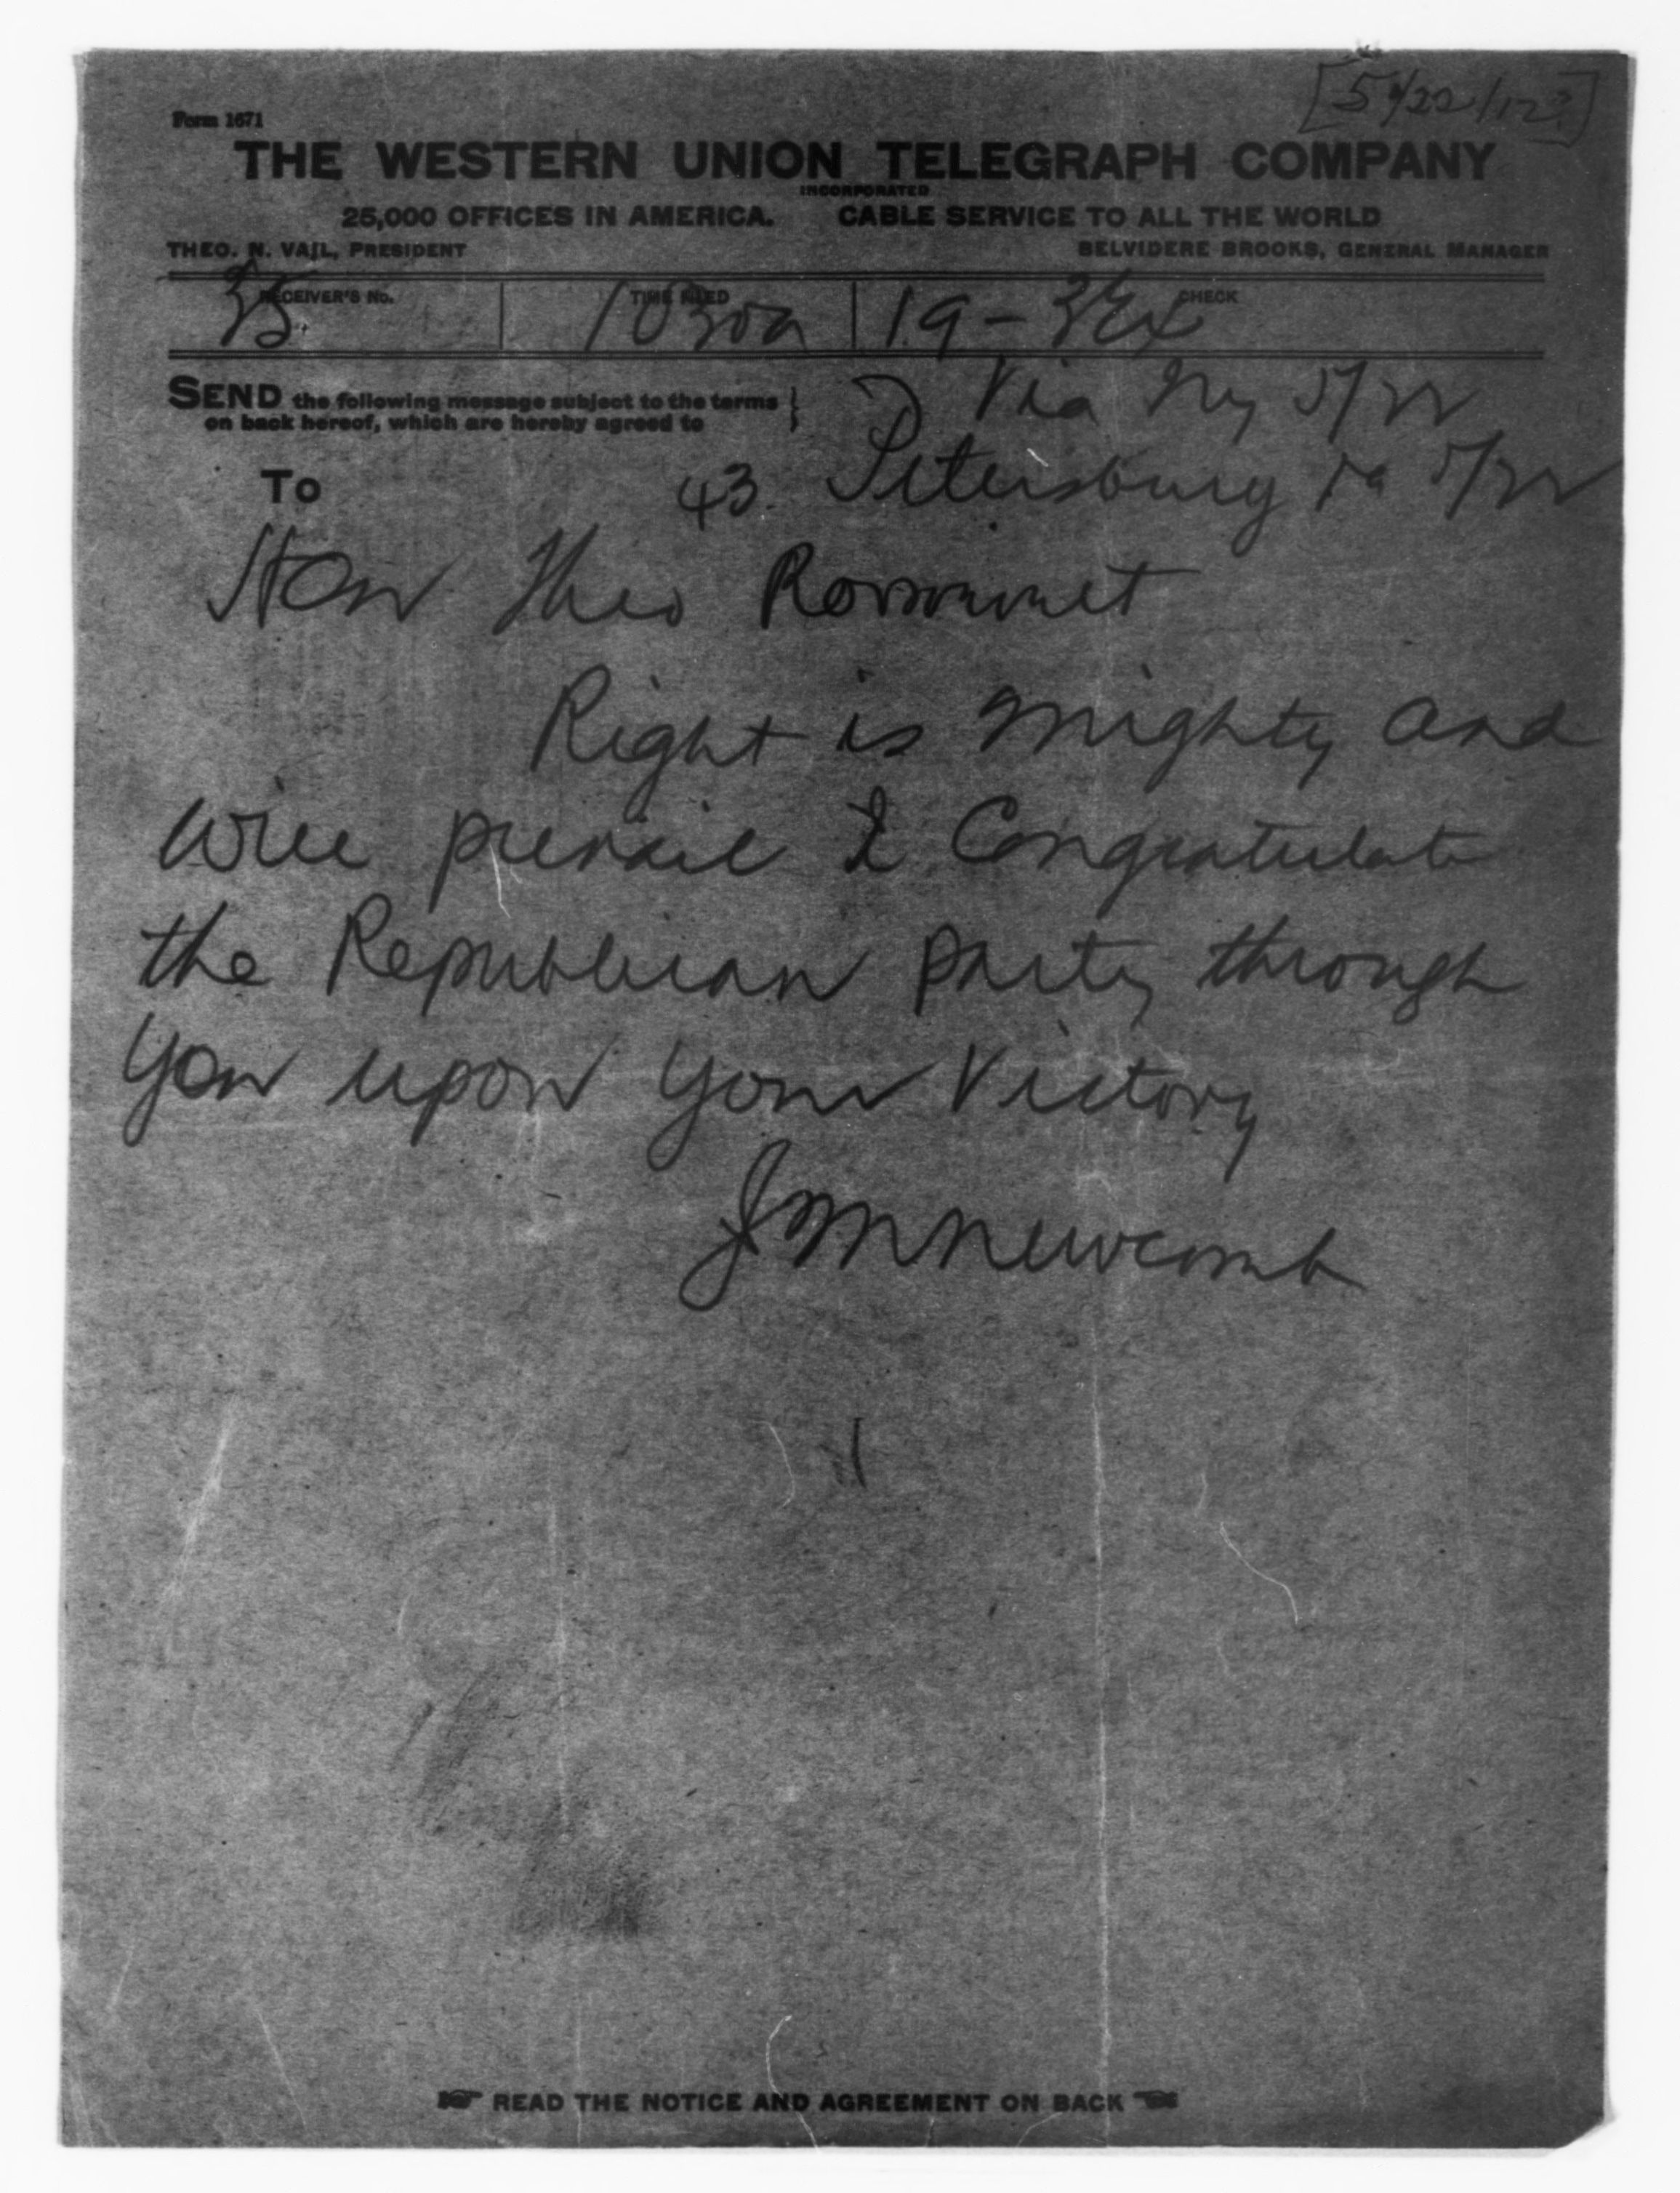 [5/22/12?]
Form 1671
THE WESTERN UNION TELEGRAPH COMPANY
INCORPORATED
25,000 OFFICES IN AMERICA. CABLE SERVICE TO ALL THE WORLD
THEO. N. VAIL, PRESIDENT BELVIDERE BROOKS, GENERAL MANAGER
RECEIVER'S No. TIME FILED CHECK
35 1030a 19-
SEND the following message subject to the terms
on back hereof, which are hereby agreed to
Via Ny 5/22
To 43. Petersburg Va 5/22
Hon Theo Roosevelt
Right is mighty and
will prevail I Congratulate
the Republican party through
you upon your Victory
J M Newcomb
READ THE NOTICE AND AGREEMENT ON BACK